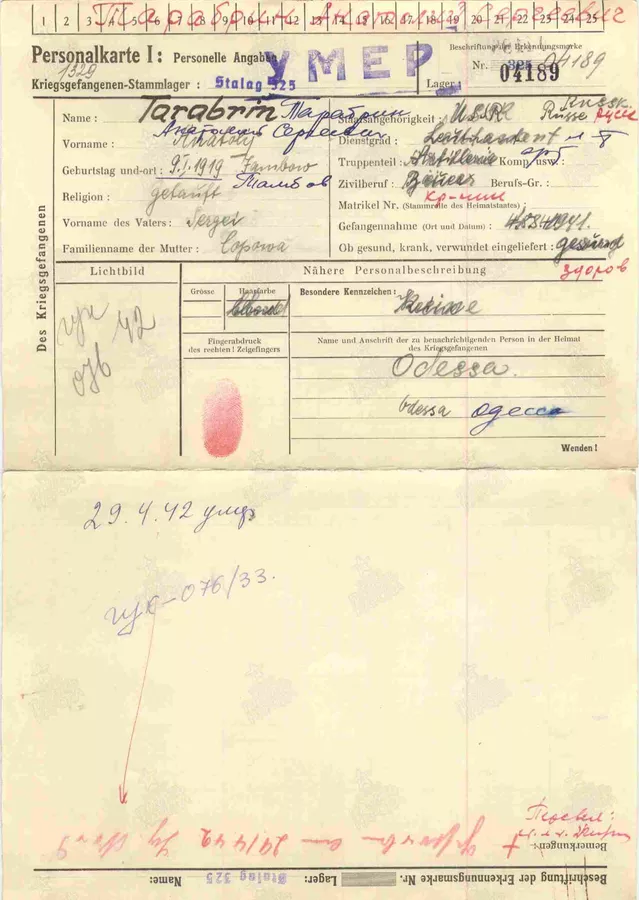 1 2 3 4 5 6 7 8 9 10 11 12 13 14 15 16 17 18 19 20 21 22 23 24 25
Тарабрин Анатолий Сергеевич
Personalkarte I: Personelle Angaben
УМЕР
Beschriftung der Erkennungsmarke
1329
Nr. 325 04189 04189
Kriegsgefangenen-Stammlager: Stalag 325
Lager:
Des Kriegsgefangenen
Name: Tarabrin Тарабрин
Анатолий Сергеевич
Vorname: Anatoly
Geburtstag und -ort: 9.I.1919 Tambow
Тамбов
Religion: getauft
Vorname des Vaters: Sergei
Familienname der Mutter: Popowa
Staatsangehörigkeit: Russe русс
Dienstgrad: Leuthantent л-т
Truppenteil: Artillerie Komp. usw.: арт
Zivilberuf: Bauer Berufs-Gr.:
кр-нин
Matrikel Nr. (Stammrolle des Heimatstaates):
Gefangennahme (Ort und Datum):
Ob gesund, krank, verwundet eingeliefert: gesund
здоров
Lichtbild
Nähere Personalbeschreibung
Grösse
Haarfarbe
Besondere Kennzeichen:
Keine
42
076
Fingerabdruck
des rechten! Zeigefingers
Name und Anschrift der zu benachrichtigenden Person in der Heimat
des Kriegsgefangenen
Odessa.
Odessa одесса
Wenden!
29.4.42 умер
076/33.
Перевел:
Bemerkungen:
Beschriftung der Erkennungsmarke Nr. Lager: Stalag 325 Name: